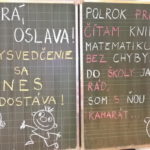 RA,
OSLAVA!
YSVEDČENIE
SA
NES
DOSTÁVA!
POLROK PR
ČÍTAM KNI
MATEMATIKU
BEZ CHYBY
DO ŠKOLY JA
RÁD,
SOM S ŇOU
KAMARÁT.